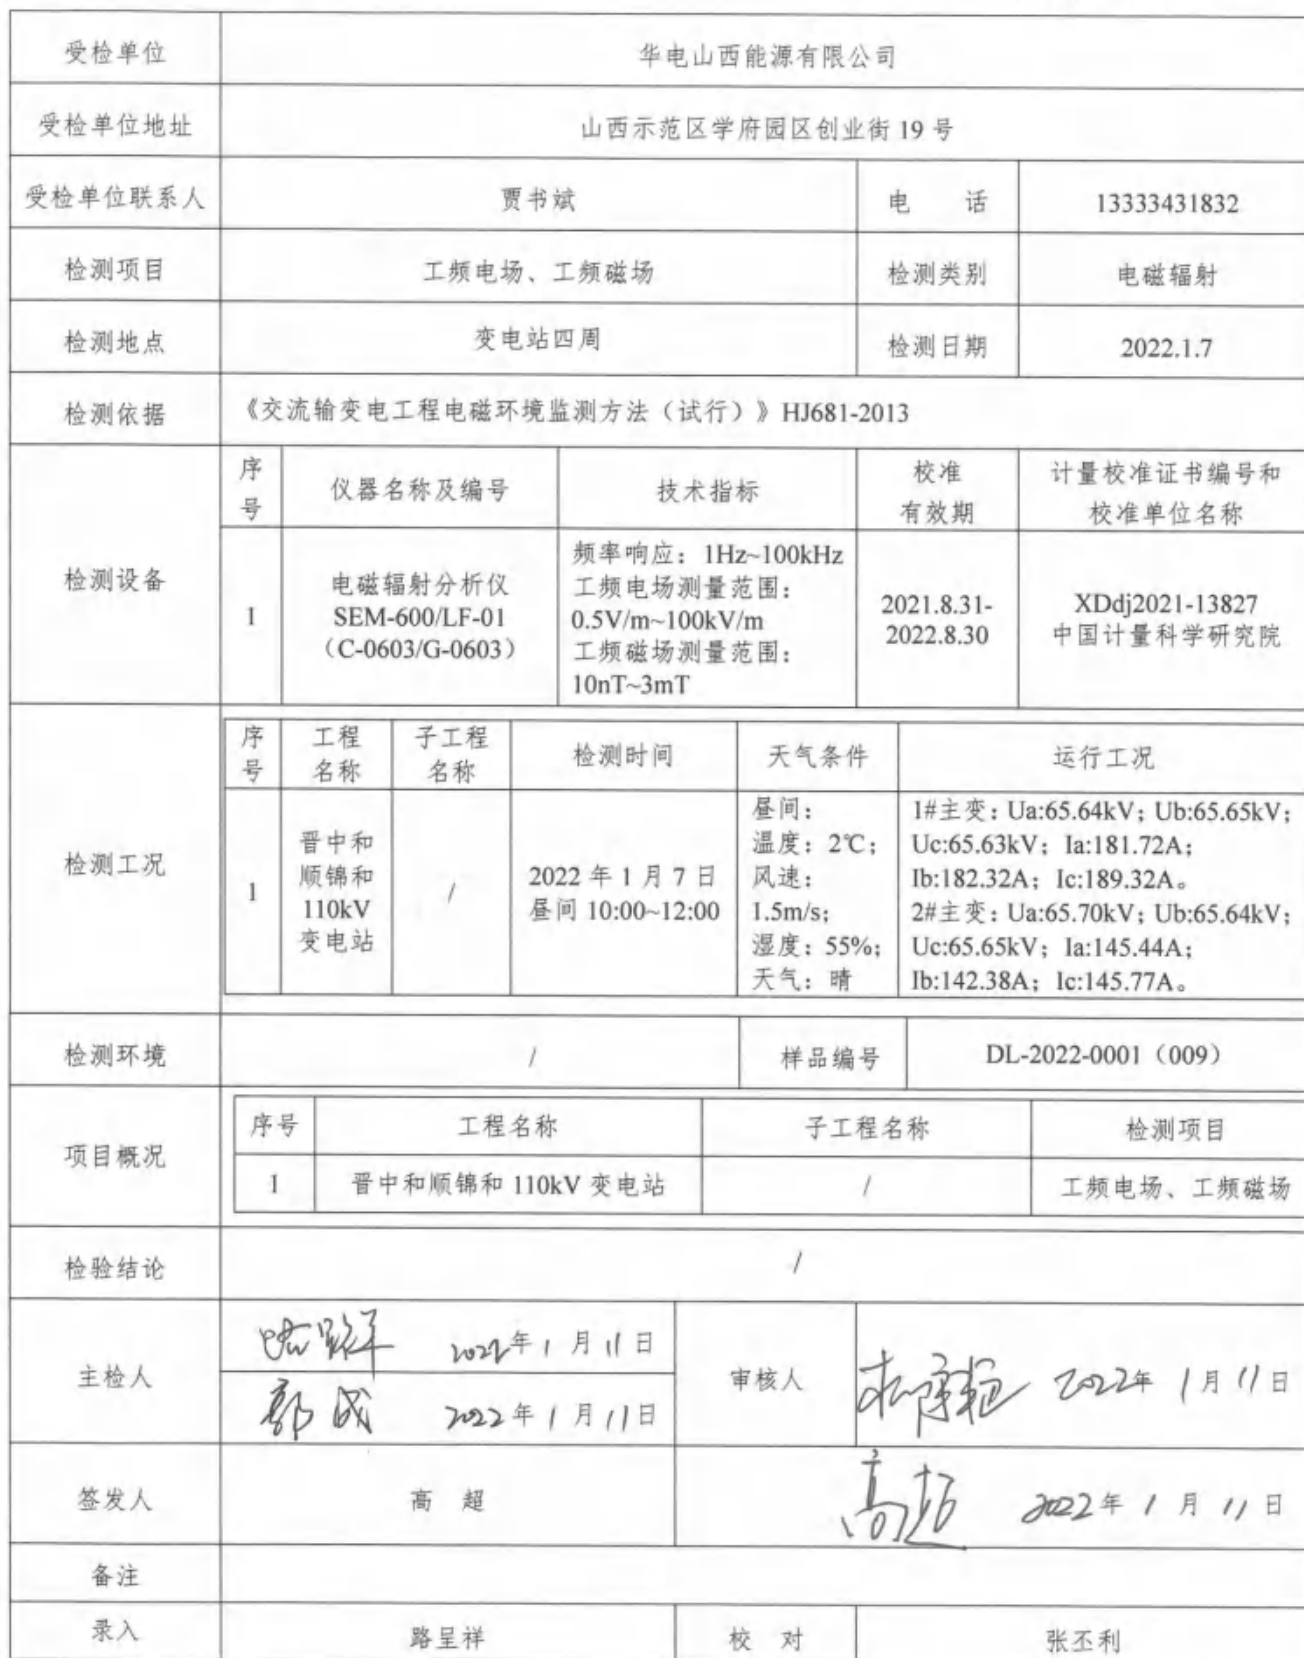 受检单位 华电山西能源有限公司
受检单位地址 山西示范区学府园区创业街 19 号
受检单位联系人 贾书斌 电 话 13333431832
检测项目 工频电场、工频磁场 检测类别 电磁辐射
检测地点 变电站四周 检测日期 2022.1.7
检测依据 《交流输变电工程电磁环境监测方法（试行）》HJ681-2013
检测设备
序号 仪器名称及编号 技术指标 校准有效期 计量校准证书编号和校准单位名称
1
电磁辐射分析仪
SEM-600/LF-01
（C-0603/G-0603）
频率响应：1Hz~100kHz
工频电场测量范围：
0.5V/m~100kV/m
工频磁场测量范围：
10nT~3mT
2021.8.31-
2022.8.30
XDdj2021-13827
中国计量科学研究院
检测工况
序号 工程名称 子工程名称 检测时间 天气条件 运行工况
1
晋中和
顺锦和
110kV
变电站
/
2022 年 1 月 7 日
昼间 10:00~12:00
昼间：
温度：2℃；
风速：
1.5m/s;
湿度：55%；
天气：晴
1#主变：Ua:65.64kV；Ub:65.65kV；
Uc:65.63kV；Ia:181.72A；
Ib:182.32A；Ic:189.32A。
2#主变：Ua:65.70kV；Ub:65.64kV；
Uc:65.65kV；Ia:145.44A；
Ib:142.38A；Ic:145.77A。
检测环境 / 样品编号 DL-2022-0001（009）
项目概况
序号 工程名称 子工程名称 检测项目
1 晋中和顺锦和 110kV 变电站 / 工频电场、工频磁场
检验结论 /
主检人
路呈祥 2022年 1 月 11 日
郭成 2022 年 1 月 11 日
审核人 2022年 1 月 11 日
签发人 高 超 高超 2022 年 1 月 11 日
备注
录入 路呈祥 校 对 张丕利